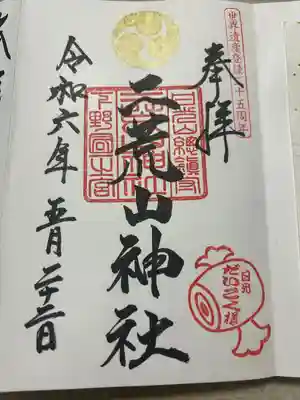 世界遺産登録二十五周年
奉拝
日光山總鎮守
下野國一之宮
二荒山神社
令和六年 五月二十二日
日光
だいこく様